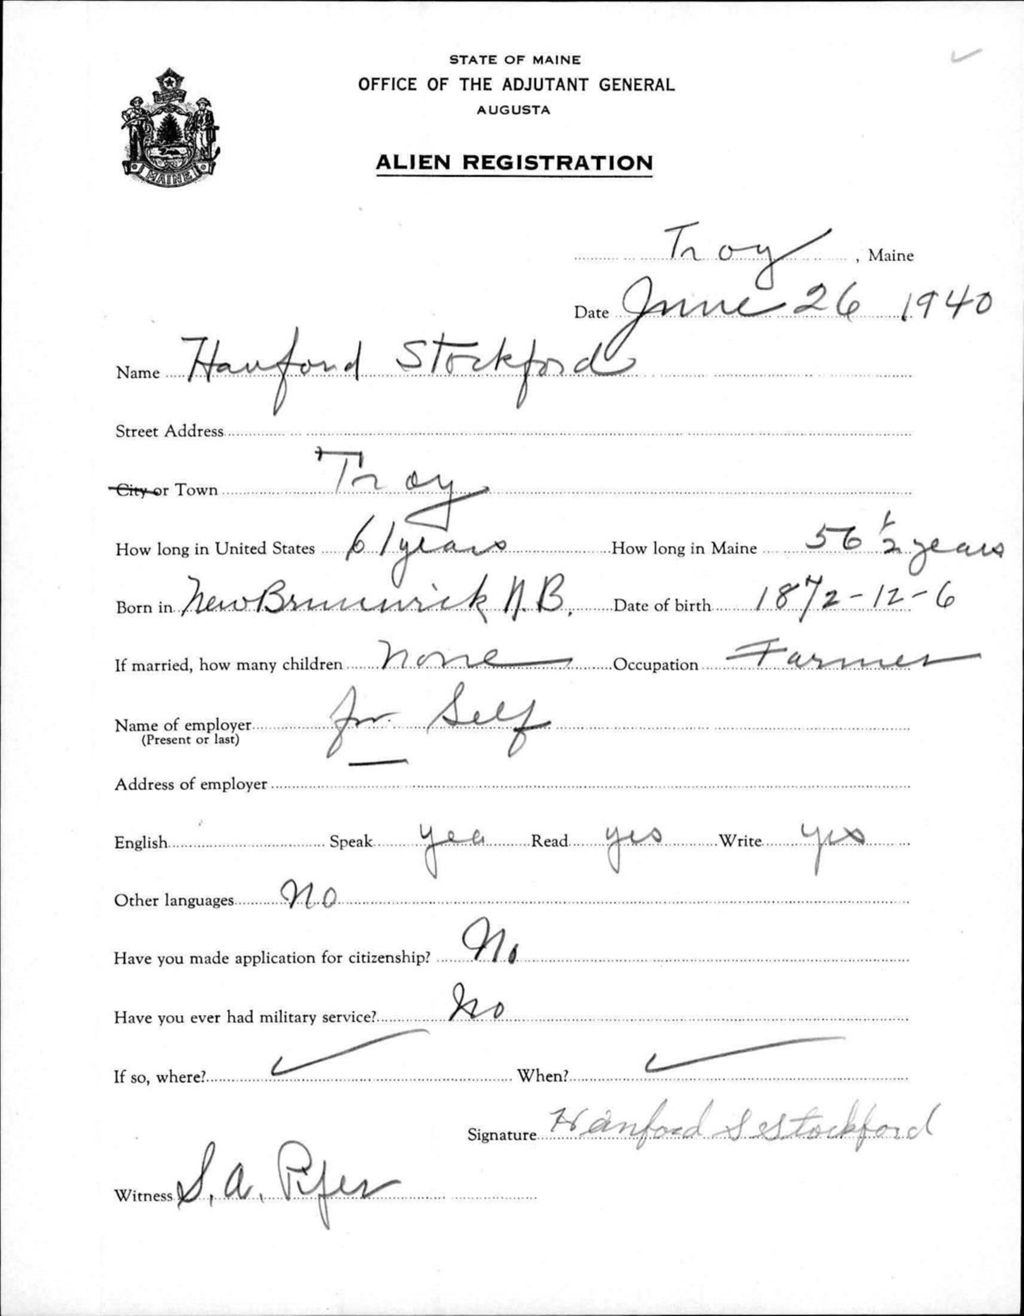 STATE OF MAINE
OFFICE OF THE ADJUTANT GENERAL
AUGUSTA
ALIEN REGISTRATION
MAINE
Troy, Maine
Date June 26 1940
Name Hanford Stockford
Street Address
City or Town Troy
How long in United States 61 years How long in Maine 56 1/2 years
Born in New Brunswick N.B. Date of birth 1872-12-6
If married, how many children none Occupation Farmer
Name of employer for Self
(Present or last)
Address of employer
English Speak yea Read yes Write yes
Other languages No
Have you made application for citizenship? No
Have you ever had military service? No
If so, where? When?
Signature Hanford S Stockford
Witness S. A.